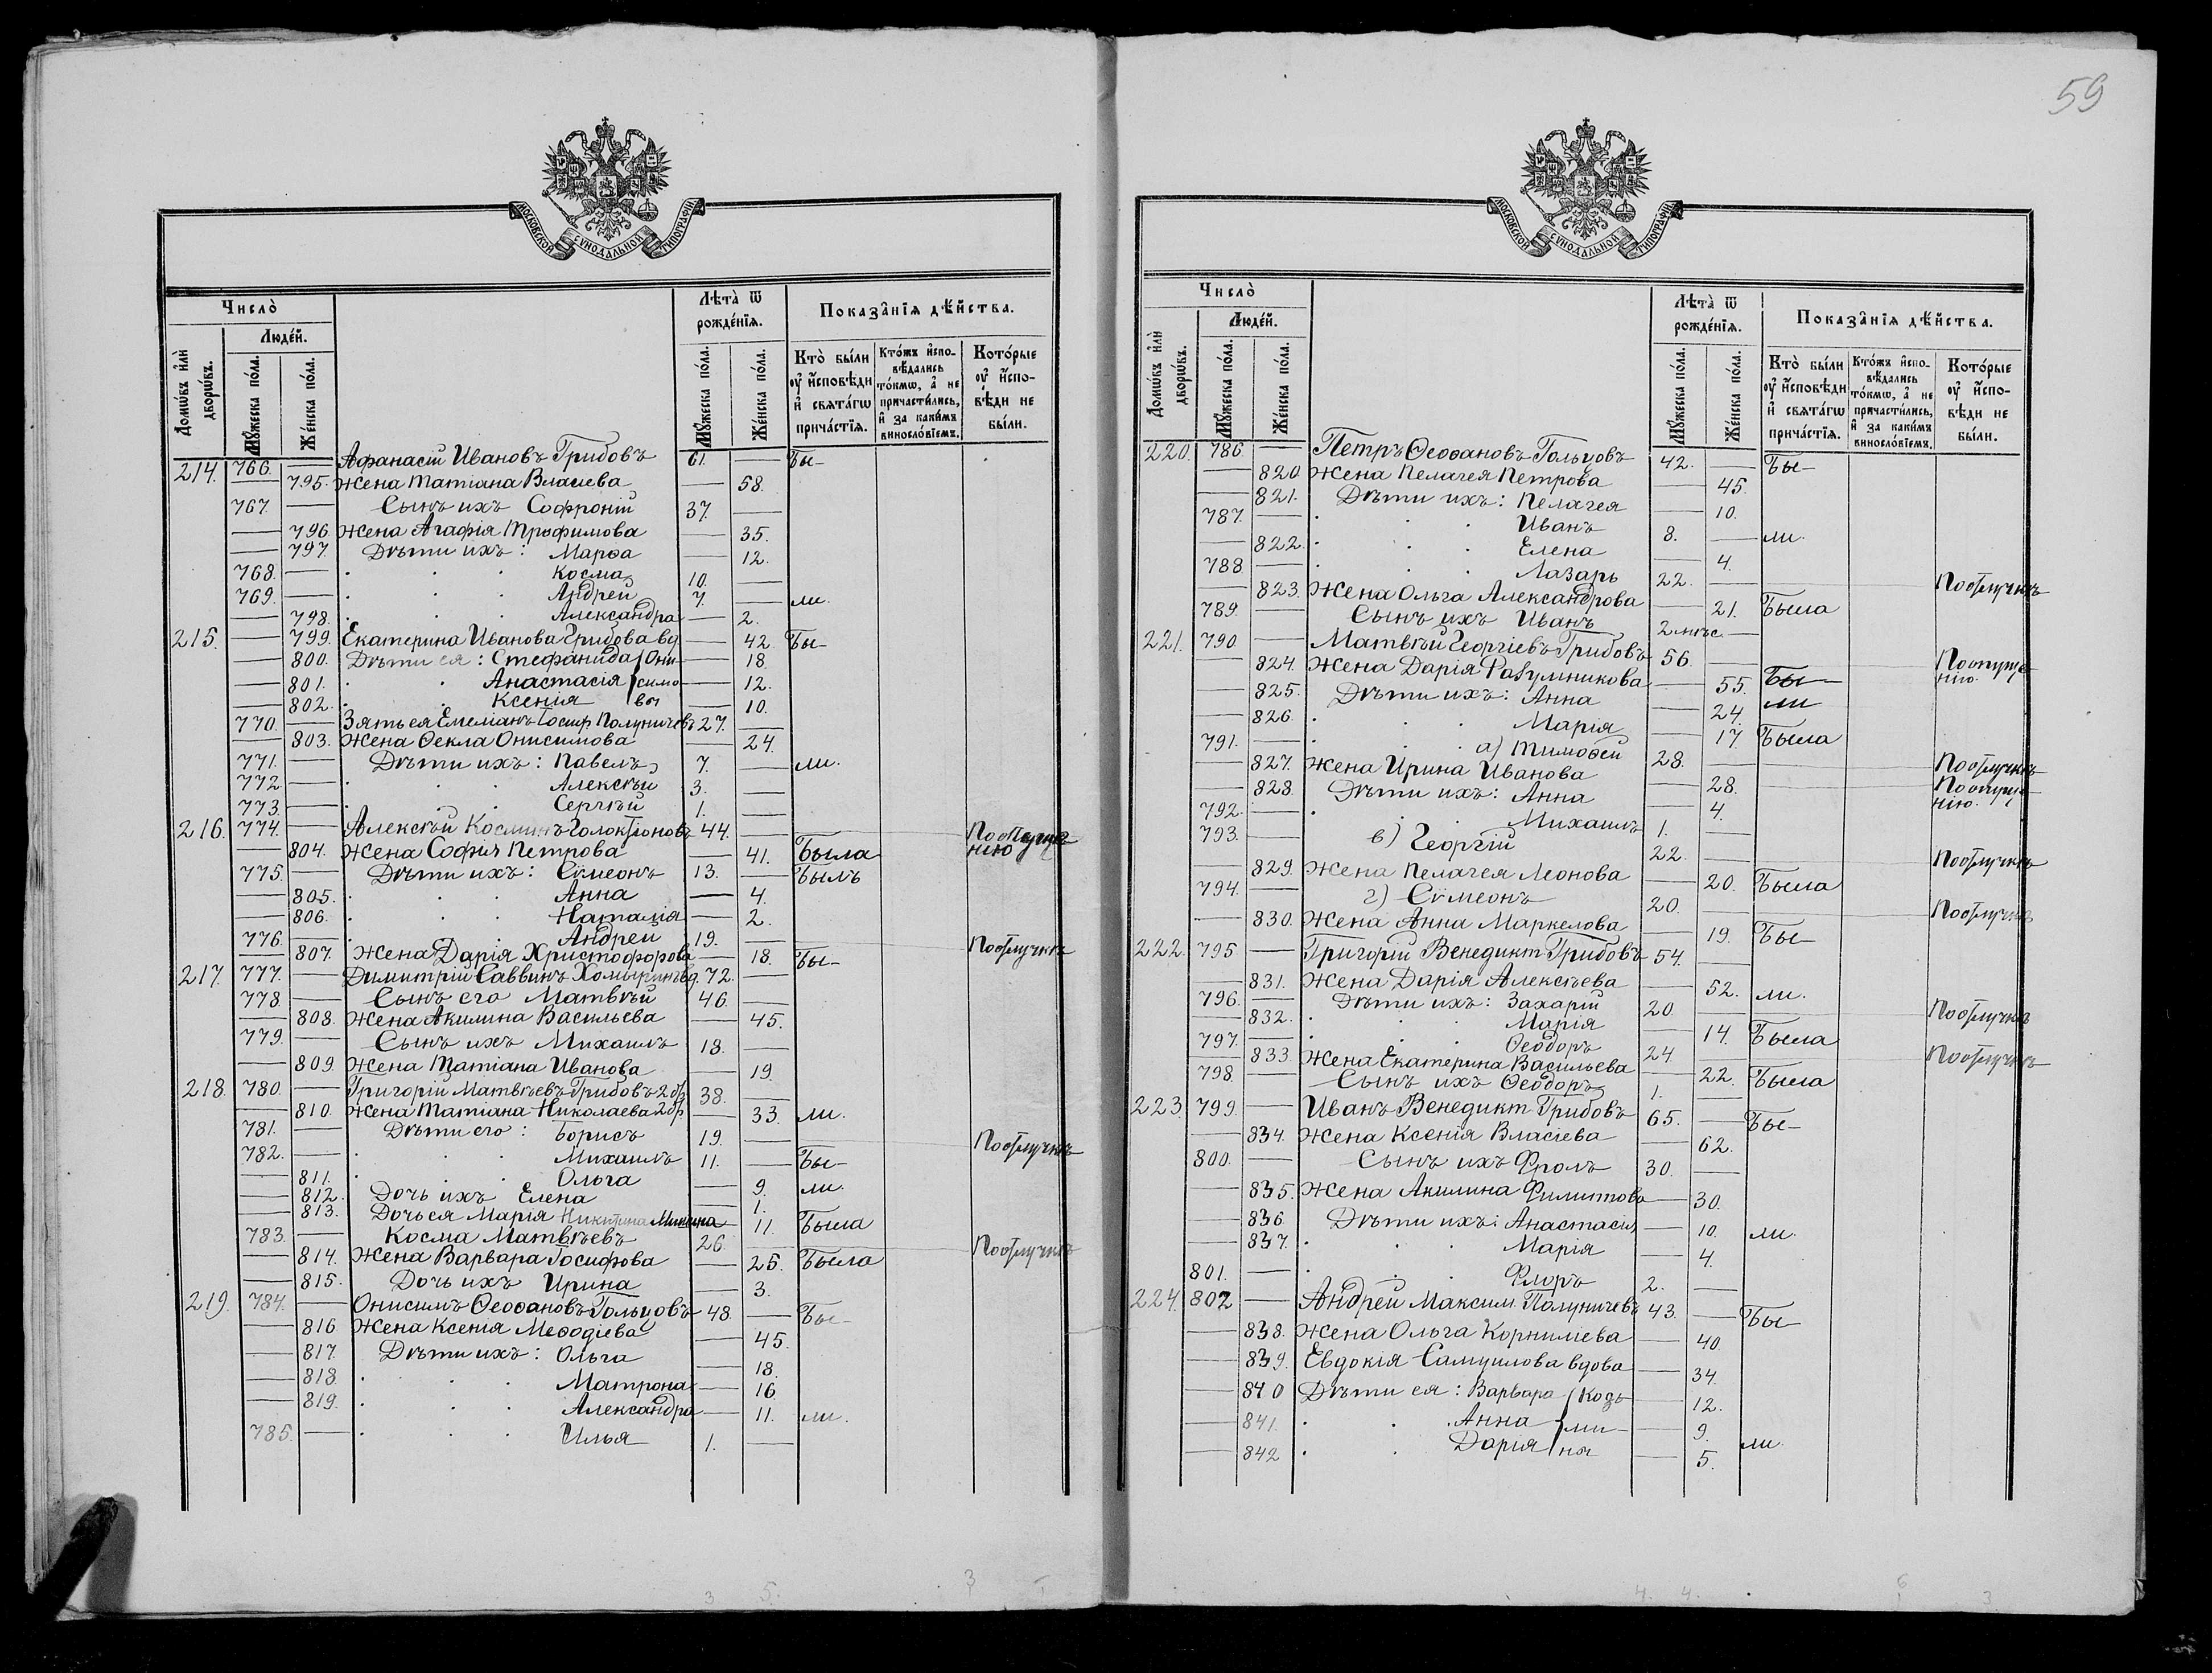 59
МОСКОВСКОЙ СѴНОДАЛЬНОЙ ТИПОГРАФІИ
Число̀
Людéй.
Лѣта̀ ѿ рождéнїѧ.
Показа̂нїѧ дѣ́йства.
Домѡ́въ и҆лѝ дворѡ́въ.
Мꙋ́жеска по́ла.
Же́нска по́ла.
Мꙋ́жеска по́ла.
Же́нска по́ла.
Кто̀ бы́ли ᲂу҆ и҆́сповѣди и҆ свѧта́гѡ прича́стїѧ.
Кто́жъ и҆спо-вѣ́дались то́кмѡ, а҆ не причасти́лись, и҆ за каки́мъ винослóвїемъ.
Кото́рые ᲂу҆ и҆́спо-вѣди не бы́ли.
214. 766. — Афанасій Ивановъ Грибовъ 61. — Бы-
— 795. Жена Татіана Власіева — 58.
767. — Сынъ ихъ Софроній 37. —
— 796. Жена Агафія Трофимова — 35.
— 797. Дѣти ихъ: Марѳа — 12.
768. — Косма 10. —
769. — Андрей 7. — ли.
— 798. Александра — 2.
215. — 799. Екатерина Иванова Грибова вд. — 42. Бы-
— 800. Дѣти ея: Стефанида Они- — 18.
— 801. Анастасія симо- — 12.
— 802. Ксенія вы — 10.
770. — Зять ея Емеліанъ Іосиф Полуничевъ 27. —
— 803. Жена Ѳекла Онисимова — 24.
771. — Дѣти ихъ: Павелъ 7. — ли.
772. — Алексѣй 3. —
773. — Сергѣй 1. —
216. 774. — Алексѣй Косминъ Голоктіоновъ 44. — По опущенію
— 804. Жена Софія Петрова — 41. Была
775. — Дѣти ихъ: Сѵмеонъ 13. — Былъ
— 805. Анна — 4.
— 806. Наталія — 2.
776. — Андрей 19. — По отлучкѣ
— 807. Жена Дарія Христофорова — 18. Бы-
217. 777. — Димитрій Саввинъ Хомыринъ вд. 72. —
778 — Сынъ его Матвѣй 46. —
— 808. Жена Акилина Васильева — 45.
779. — Сынъ ихъ Михаилъ 18. —
— 809. Жена Татіана Иванова — 19.
218. 780. — Григорій Матвѣевъ Грибовъ 2 бр. 38. —
— 810. Жена Татіана Николаева 2 бр. — 33. ли.
781. — Дѣти его: Борисъ 19. — По отлучкѣ
782. — Михаилъ 11. — Бы-
— 811. Ольга — 9. ли.
— 812. Дочь ихъ Елена — 1.
— 813. Дочь ея Марія Никитина Минина — 11. Была
783. — Косма Матвѣевъ 26. — По отлучкѣ
— 814. Жена Варвара Іосифова — 25. Была
— 815. Дочь ихъ Ирина — 3.
219. 784. — Онисимъ Ѳеофановъ Гольцовъ 48. — Бы-
— 816 Жена Ксенія Меѳодіева — 45.
— 817. Дѣти ихъ: Ольга — 18.
— 818 Матрона — 16
— 819. Александра — 11. ли.
785. — Илья 1. —
МОСКОВСКОЙ СѴНОДАЛЬНОЙ ТИПОГРАФІИ
Число̀
Людéй.
Лѣта̀ ѿ рождéнїѧ.
Показа̂нїѧ дѣ́йства.
Домѡ́въ и҆лѝ дворѡ́въ.
Мꙋ́жеска по́ла.
Же́нска по́ла.
Мꙋ́жеска по́ла.
Же́нска по́ла.
Кто̀ бы́ли ᲂу҆ и҆́сповѣди и҆ свѧта́гѡ прича́стїѧ.
Кто́жъ и҆спо-вѣ́дались то́кмѡ, а҆ не причасти́лись, и҆ за каки́мъ винослóвїемъ.
Кото́рые ᲂу҆ и҆́спо-вѣди не бы́ли.
220. 786 — Петръ Ѳеофановъ Гольцовъ 42. — Бы-
— 820 Жена Пелагея Петрова — 45.
— 821. Дѣти ихъ: Пелагея — 10.
787. — Иванъ 8. — ли.
— 822. Елена — 4.
788 — Лазарь 22. — По отлучкѣ
— 823. Жена Ольга Александрова — 21. Была
789. — Сынъ ихъ Иванъ 2 мѣс. —
221. 790. — Матвѣй Георгіевъ Грибовъ 56. — По опущенію.
— 824. Жена Дарія Разумникова — 55. Бы-
— 825. Дѣти ихъ: Анна — 24. ли
— 826. Марія — 17. Была
791. — а) Тимоѳей 28. — По отлучкѣ
— 827. Жена Ирина Иванова — 28. По опущенію.
— 828. Дѣти ихъ: Анна — 4.
792. — Михаилъ 1. —
793. — в) Георгій 22. — По отлучкѣ
— 829. Жена Пелагея Леонова — 20. Была
794. — г) Сѵмеонъ 20. — По отлучкѣ
— 830. Жена Анна Маркелова — 19. Бы-
222. 795 — Григорій Венедикт Грибовъ 54. —
— 831. Жена Дарія Алексѣева — 52. ли.
796. — Дѣти ихъ: Захарій 20. — По отлучкѣ
— 832. Марія — 14. Была
797. — Ѳеодоръ 24 — По отлучкѣ
— 833. Жена Екатерина Васильева — 22. Была
798. — Сынъ ихъ Ѳеодоръ 1. —
223. 799. — Иванъ Венедикт Грибовъ 65. — Бы-
— 834. Жена Ксенія Власіева — 62.
800. — Сынъ ихъ Фролъ 30. —
— 835. Жена Акилина Филиппова — 30.
— 836 Дѣти ихъ: Анастасія — 10. ли.
— 837. Марія — 4.
801. — Флоръ 2. —
224. 802 — Андрей Максим. Полуничевъ 43. — Бы-
— 838. Жена Ольга Корниліева — 40.
— 839. Евдокія Самуилова вдова — 34.
— 840 Дѣти ея: Варвара Козь- — 12.
— 841. Анна ми- — 9.
— 842 Дарія ны — 5. ли.
3 5. 3 1
4. 4. 6 3